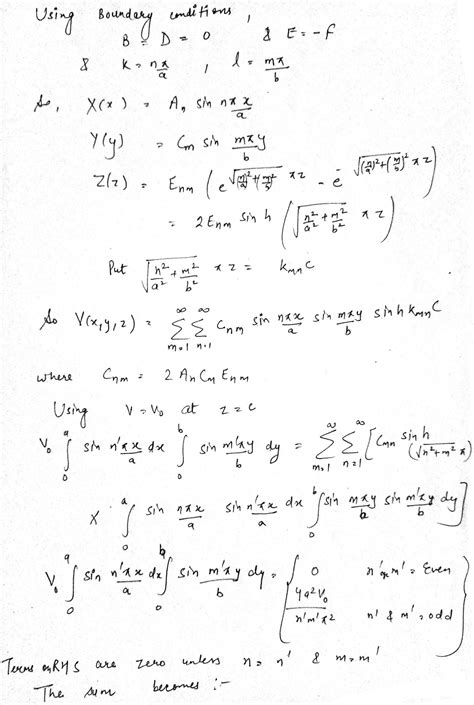 Using Boundary conditions,
B = D = 0 & E = -F
& k = nπ/a , l = mπ/b
So, X(x) = A_n sin nπx/a
Y(y) = C_m sin mπy/b
Z(z) = E_nm (e^{√((n/a)²+(m/b)²) πz} - e^{√((n/a)²+(m/b)²) πz})
= 2E_nm sin h (√(n²/a² + m²/b²) πz)
Put √(n²/a² + m²/b²) πz = k_mn C
So V(x,y,z) = Σ_{m=1}^∞ Σ_{n=1}^∞ C_nm sin nπx/a sin mπy/b sin h k_mn C
where C_nm = 2 A_n C_m E_nm
Using V = V₀ at z = c
V₀ ∫₀^a sin n'πx/a dx ∫₀^b sin m'πy/b dy = Σ_{m=1}^∞ Σ_{n=1}^∞ [C_mn sin h (√(n²+m²) π)
X ∫₀^a sin nπx/a sin n'πx/a dx ∫₀^b sin mπy/b sin m'πy/b dy]
V₀ ∫₀^a sin n'πx/a dx ∫₀^b sin m'πy/b dy = { 0 n' or m' = Even
4a²V₀/n'm'π² n' & m' = odd }
Terms on RHS are zero unless n = n' & m = m'
The sum becomes :-